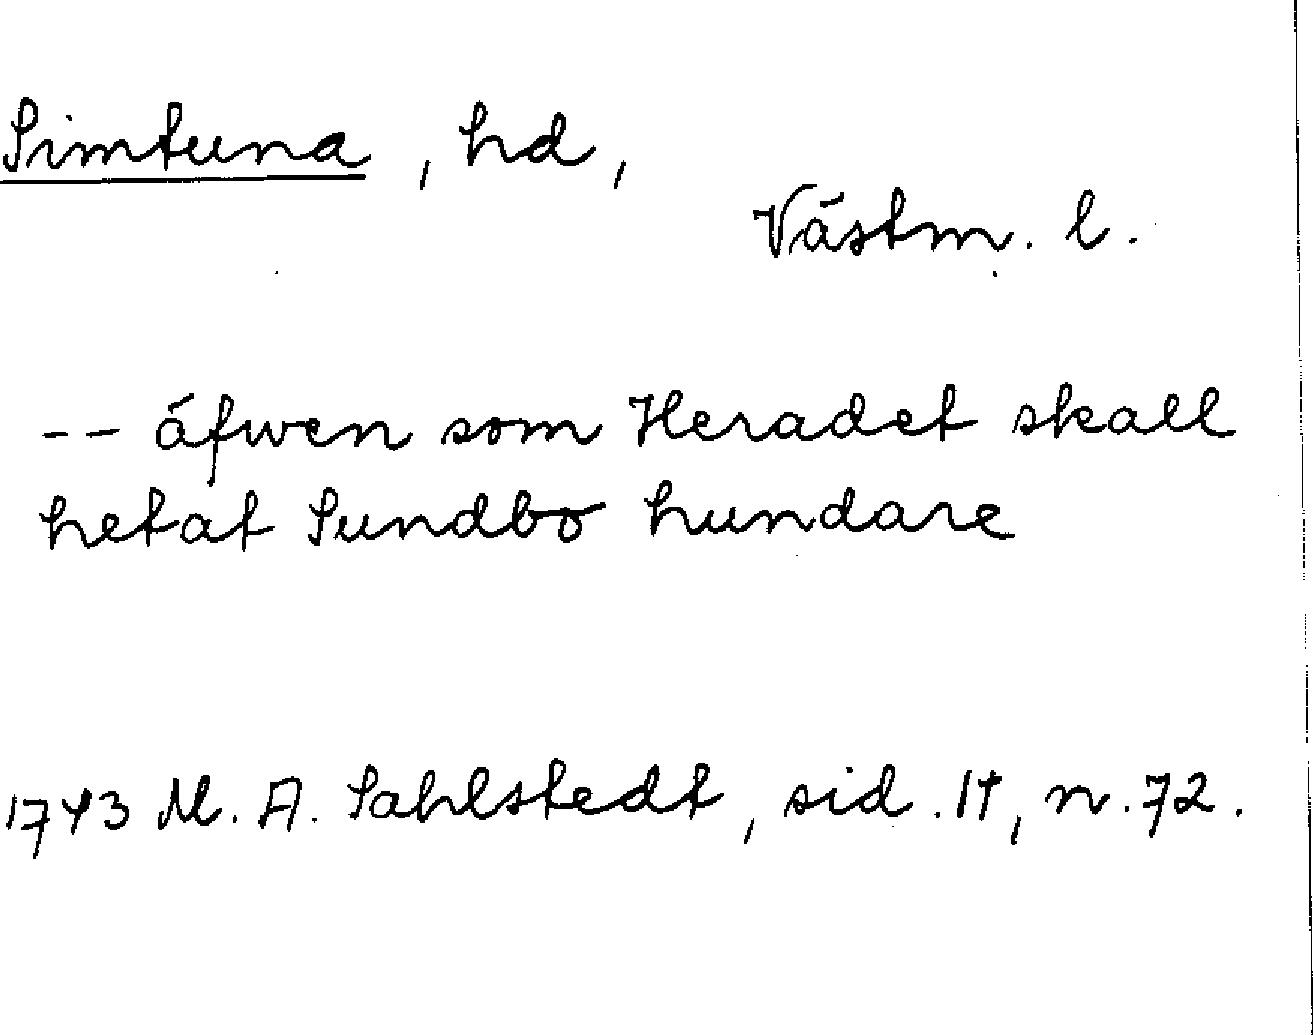 Simtuna, hd,
Västm. l.
-- äfwen som Heradet skall
hetat Sundbo hundare
1743 M. A. Sahlstedt, sid. 14, n. 72.